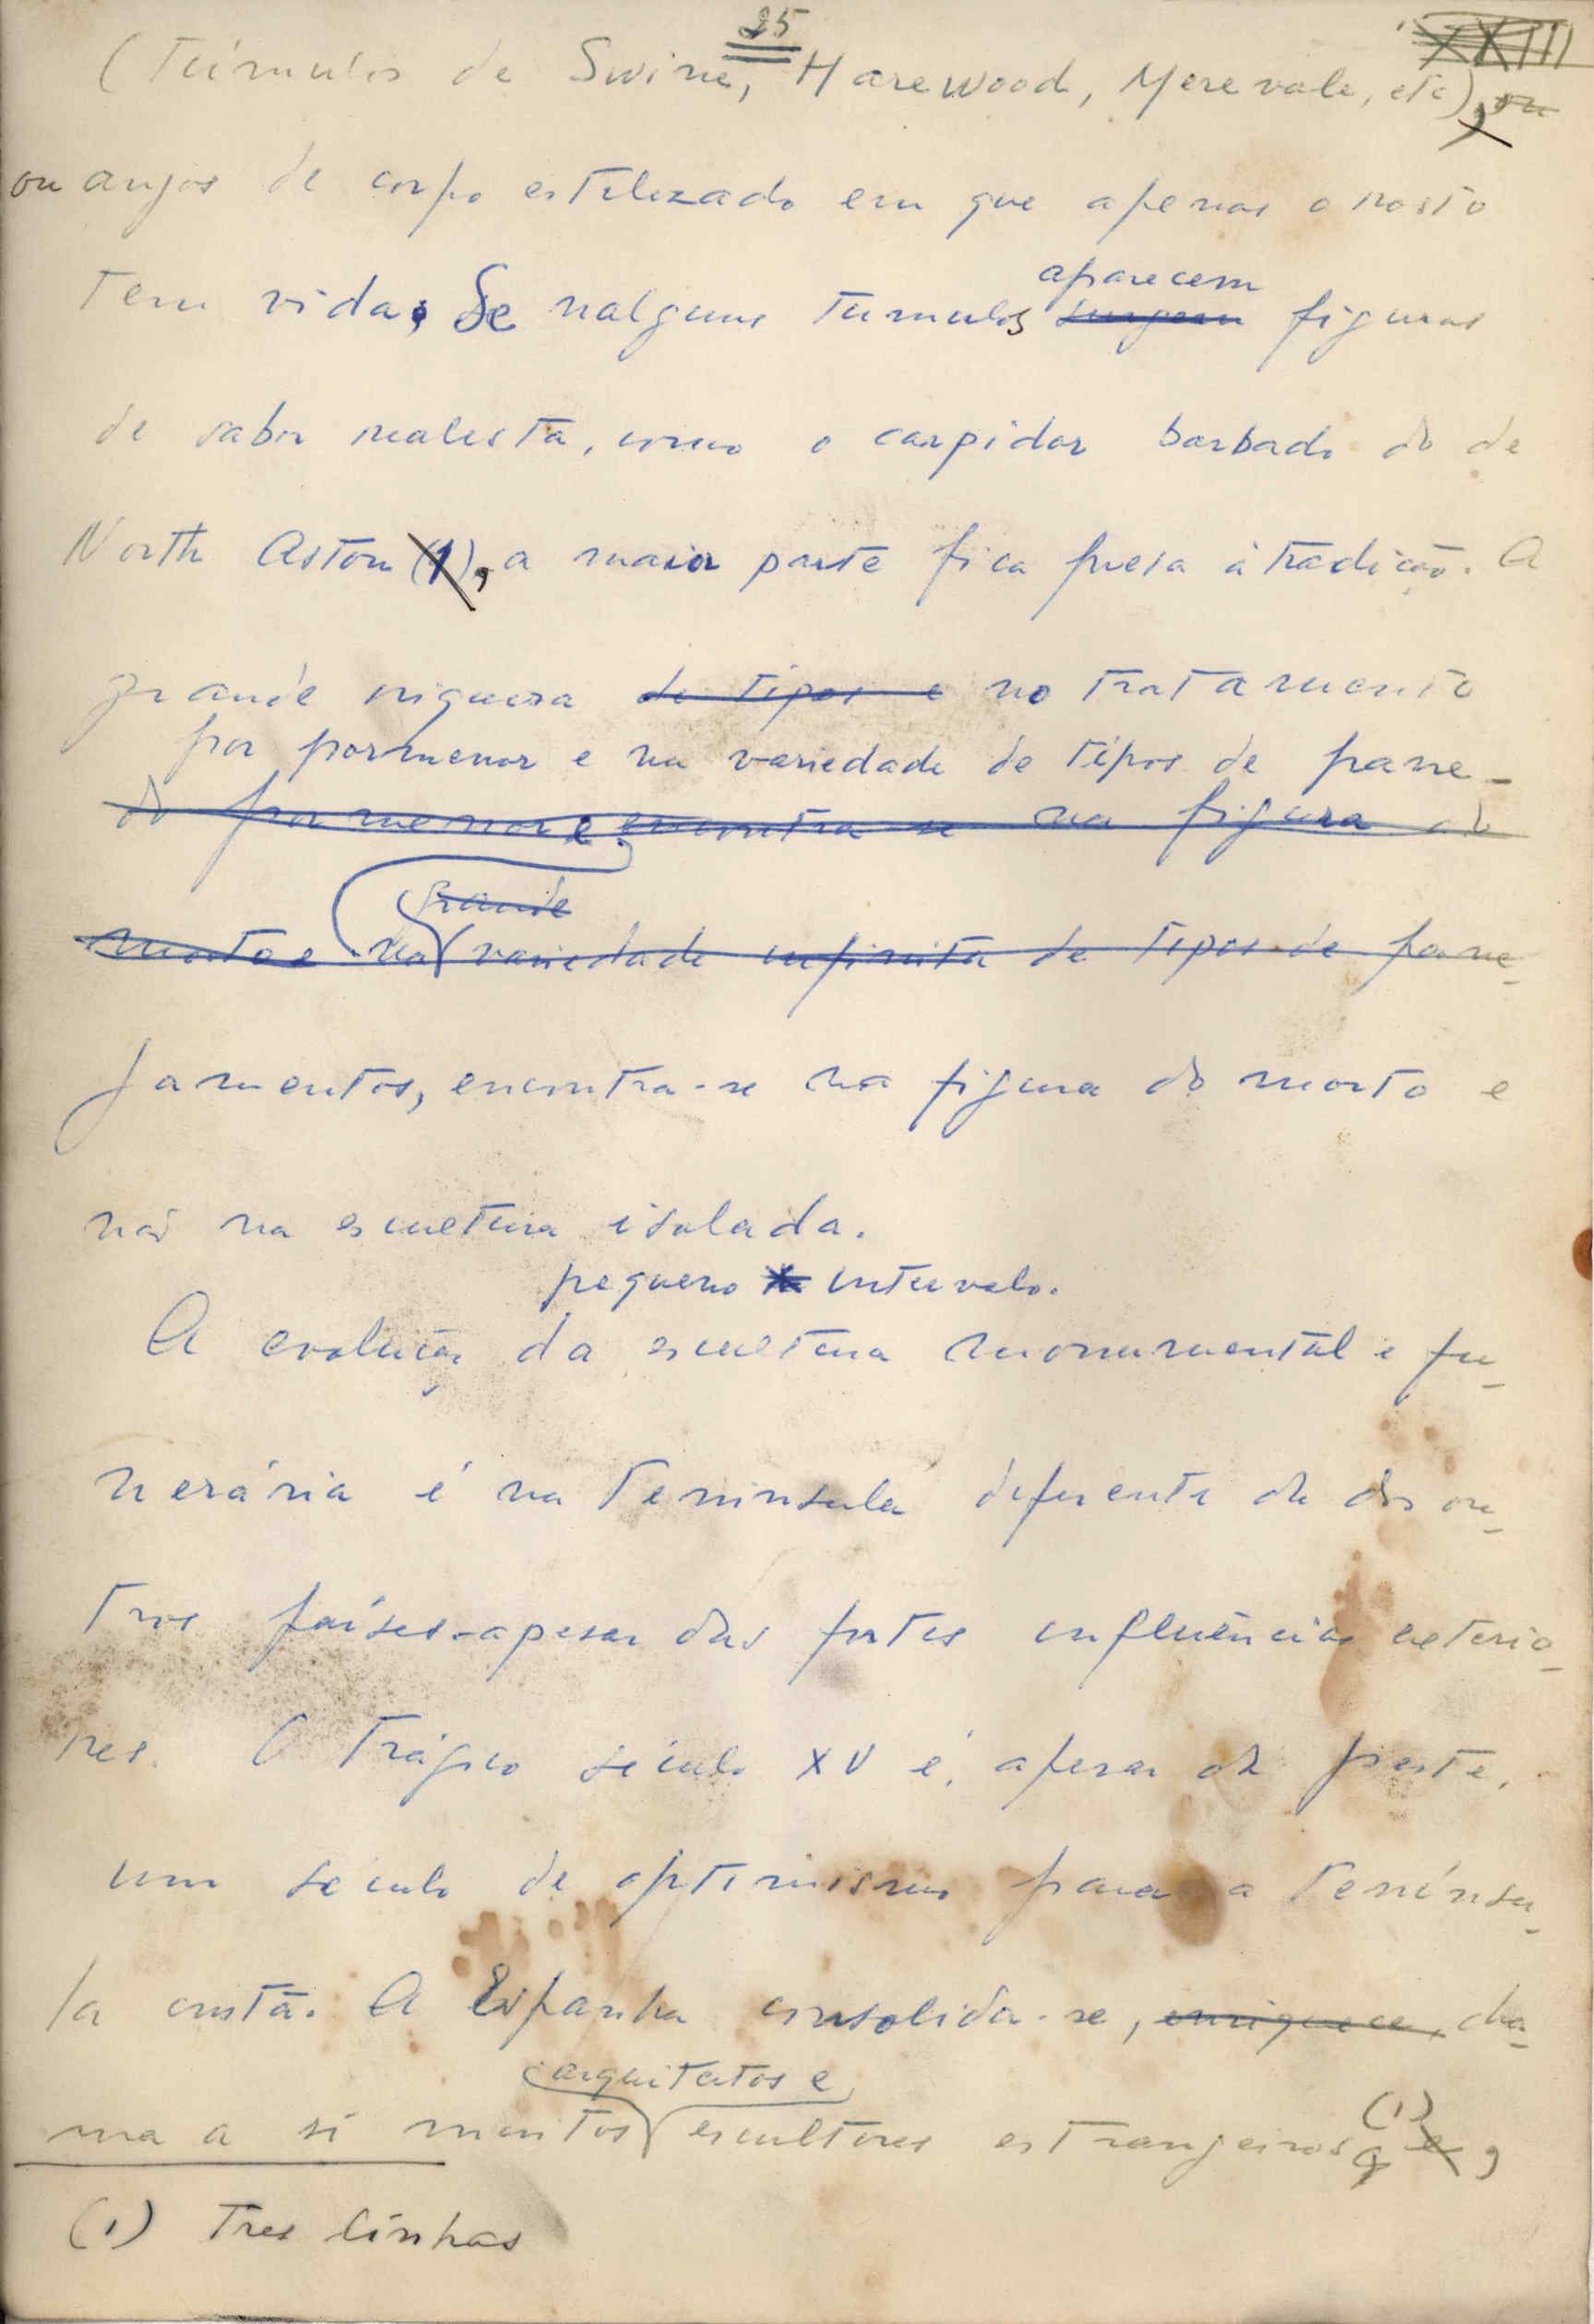 25
XXIII
(Túmulos de Swine, Harewood, Merevale, etc), ou
ou anjos de corpo estilizado em que apenas o rosto
tem vida. Se nalguns tumulos surgem figuras
aparecem
de sabor realista, como o carpidor barbado do de
North Aston (1), a maior parte fica presa à tradição. A
grande riqueza de tipos e no tratamento
por pormenor e na variedade de tipos de pane-
do pormenor e encontra-se na figura do
grande
morto e na variedade infinita de tipos de pane-
jamentos, encontra-se na figura do morto e
não na escultura isolada.
pequeno intervalo.
A evolução da escultura monumental e fu-
nerária é na Peninsula diferente da dos ou-
tros países-apesar das fortes influências exterio-
res. O trágico século XV é, apesar da peste,
um seculo de optimismo para a Penínsu-
la cristã. A Espanha consolida-se, enriquece, cha-
arquitectos e
ma a si muitos escultores estrangeiros (1) e,
(1) Tres linhas